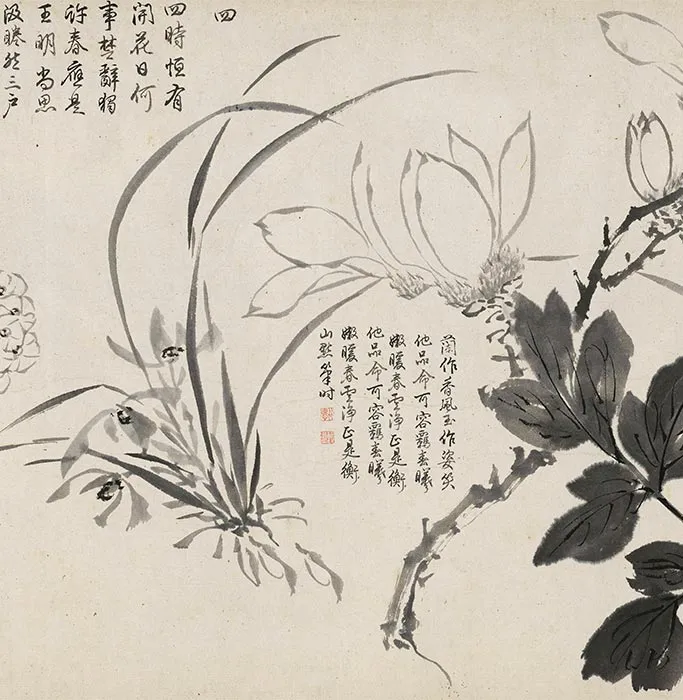 四
四時恒有
開花日何
事楚辭獨
許春應是
王明當思
汲 然三户
蘭作香風玉作姿笑
他品命可容 春曦
嫩暖春雲淨正是衡
他品命可容 春曦
嫩暖春雲淨正是衡
山點筆时